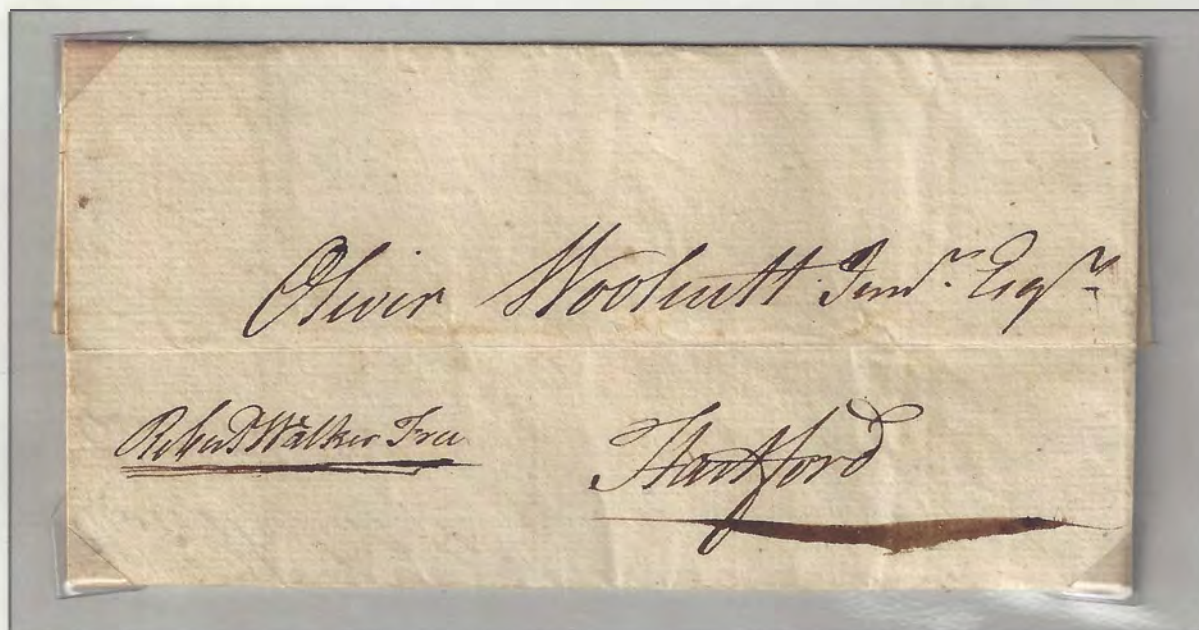 Oliver Woolcutt Junr. Esqr.
Robert Walker Free
Hartford